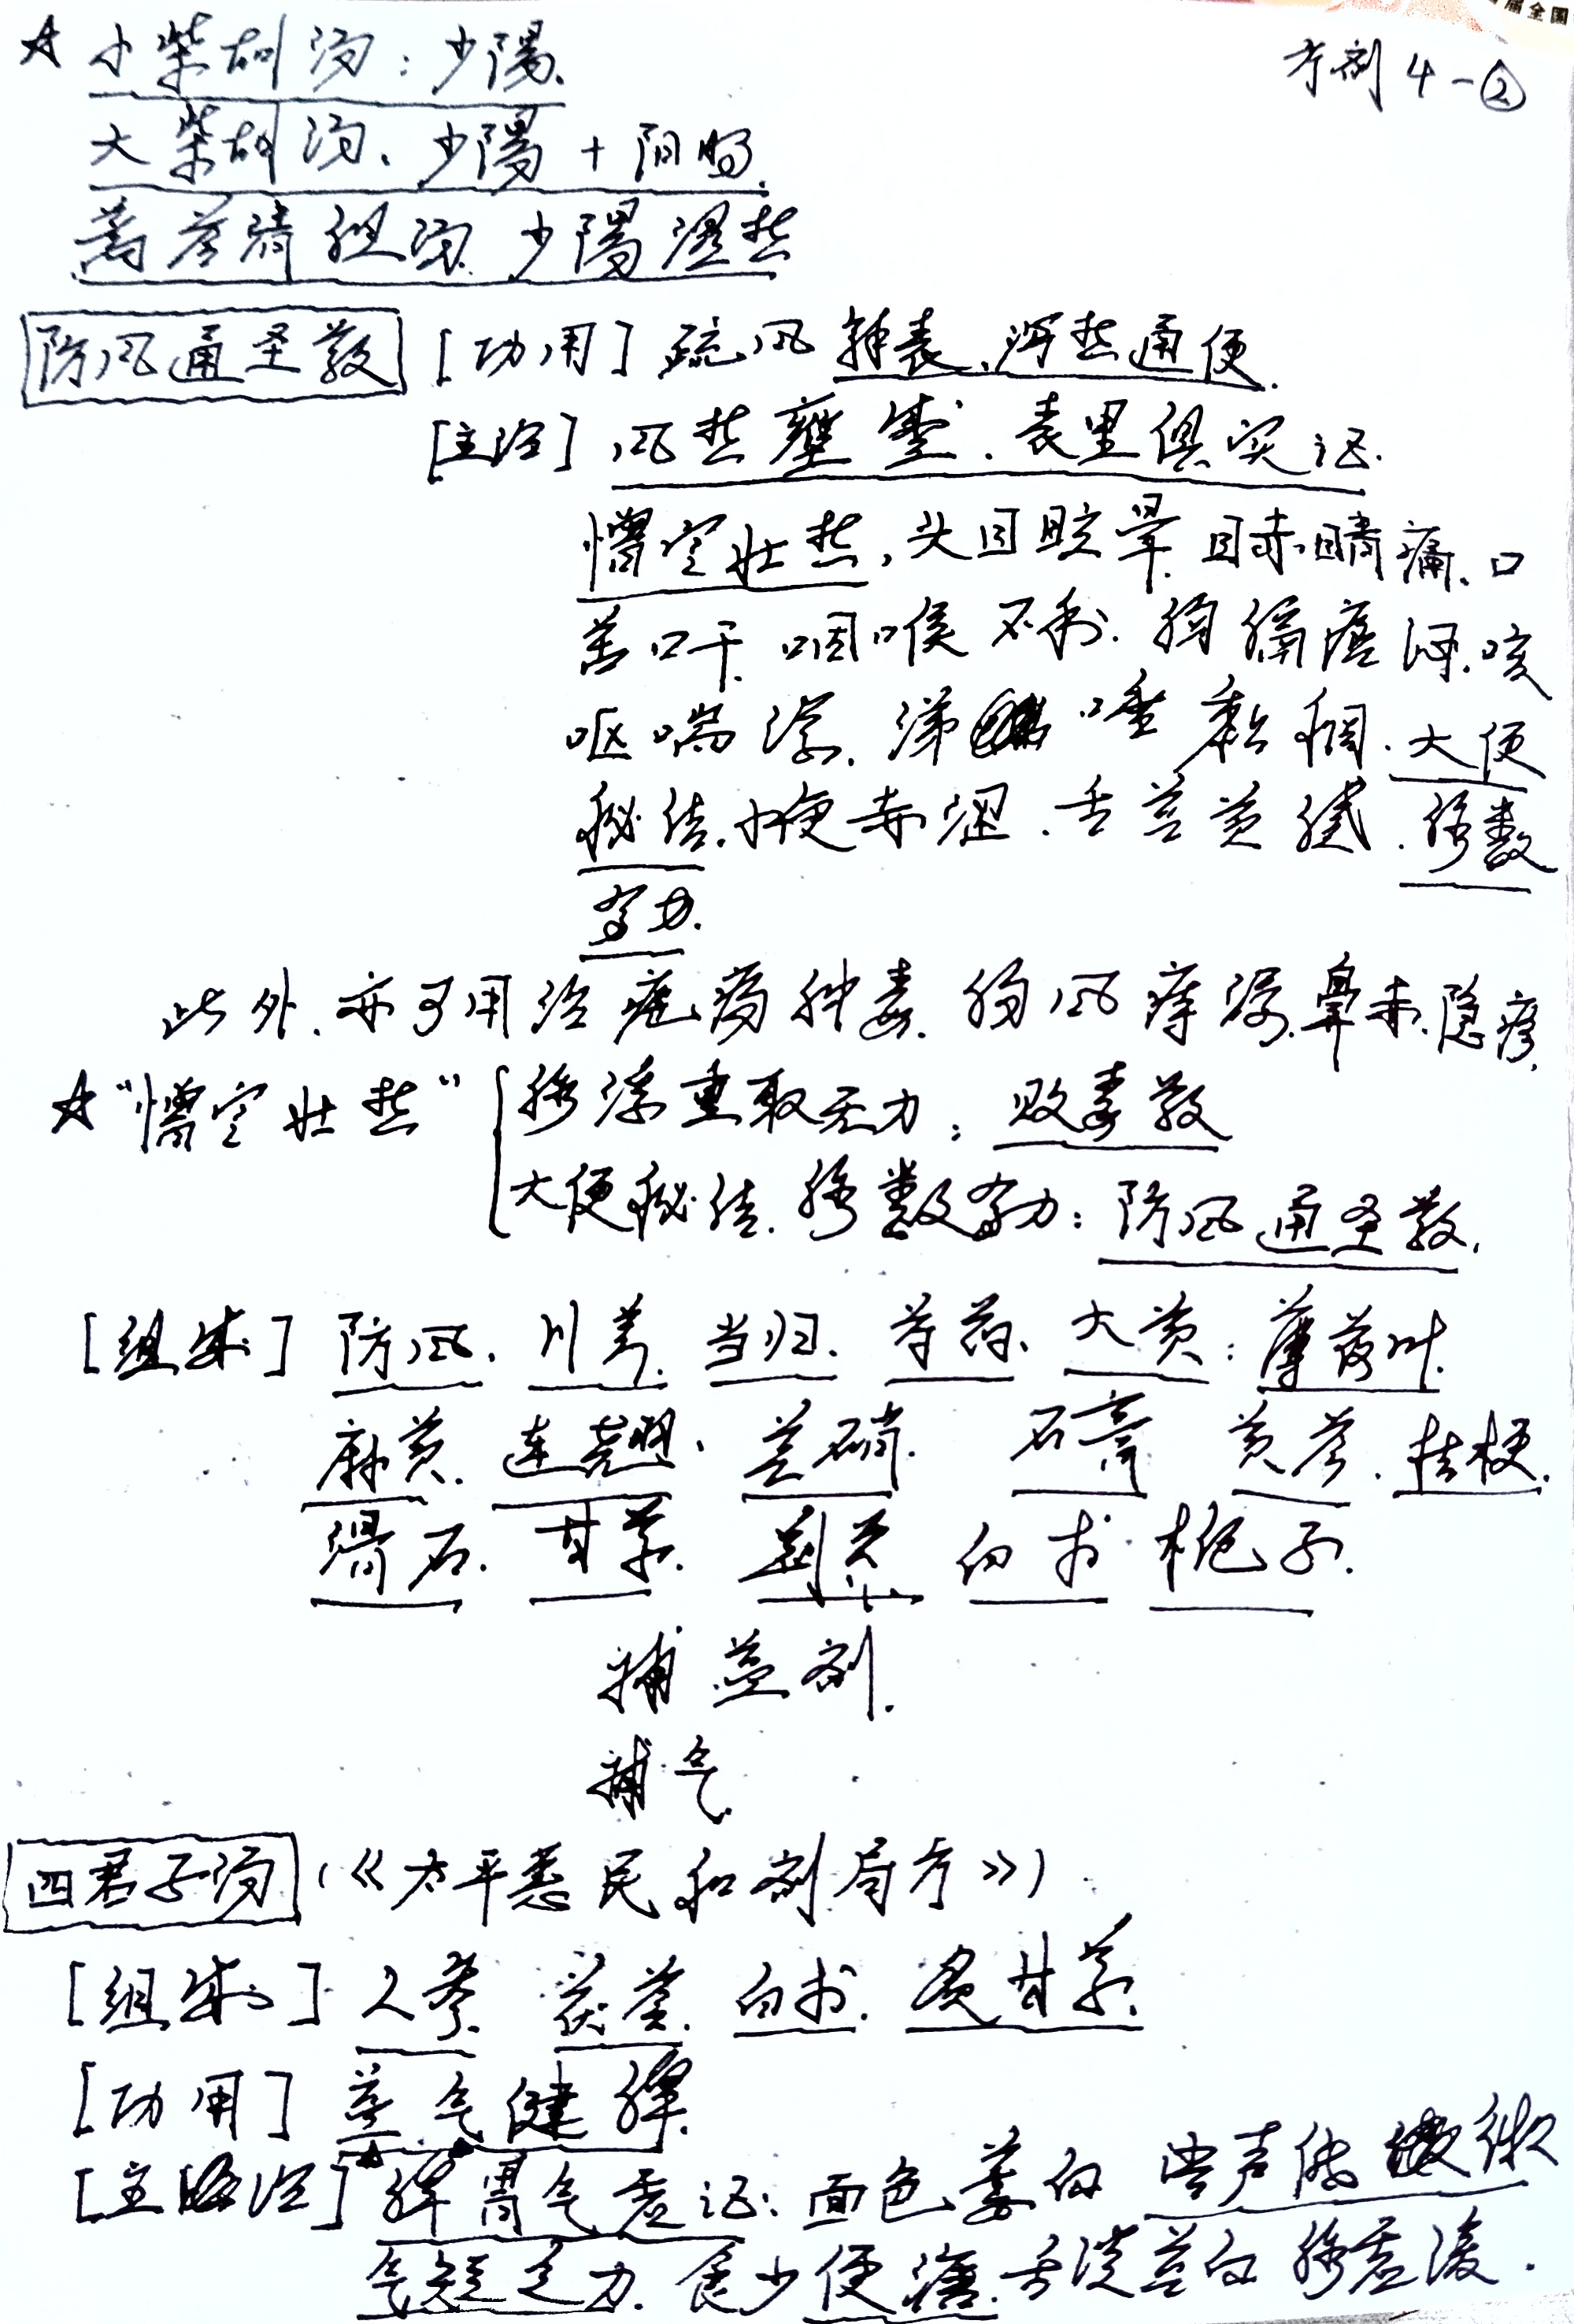 届全国
方剂4-②
☆小柴胡汤:少陽.
大柴胡汤.少陽+阳明.
蒿芩清胆汤.少陽湿热
防风通圣散 [功用] 疏风解表、泻热通便.
[主治] 风热壅盛.表里俱实证.
憎寒壮热,头目眩晕.目赤睛痛.口
苦口干.咽喉不利.胸膈痞闷.咳
呕喘满.涕唾黏稠.大便
秘结.小便赤涩.舌苔黄腻.脉数
有力.
此外.亦可用治疮疡肿毒.肠风痔漏.鼻赤.隐疹.
☆“憎寒壮热” 脉浮重取无力:败毒散
大便秘结.脉数有力:防风通圣散.
[组成] 防风.川芎.当归.芍药.大黄.薄荷叶.
麻黄.连翘.芒硝.石膏 黄芩.桔梗.
滑石.甘草.荆芥 白术 栀子.
補益剂.
補气
四君子汤 (《太平惠民和剂局方》)
[组成] 人参.茯苓.白术.炙甘草.
[功用] 益气健脾.
[主治] 脾胃气虚证:面色萎白 语声低微
气短乏力.食少便溏.舌淡苔白 脉虚缓.